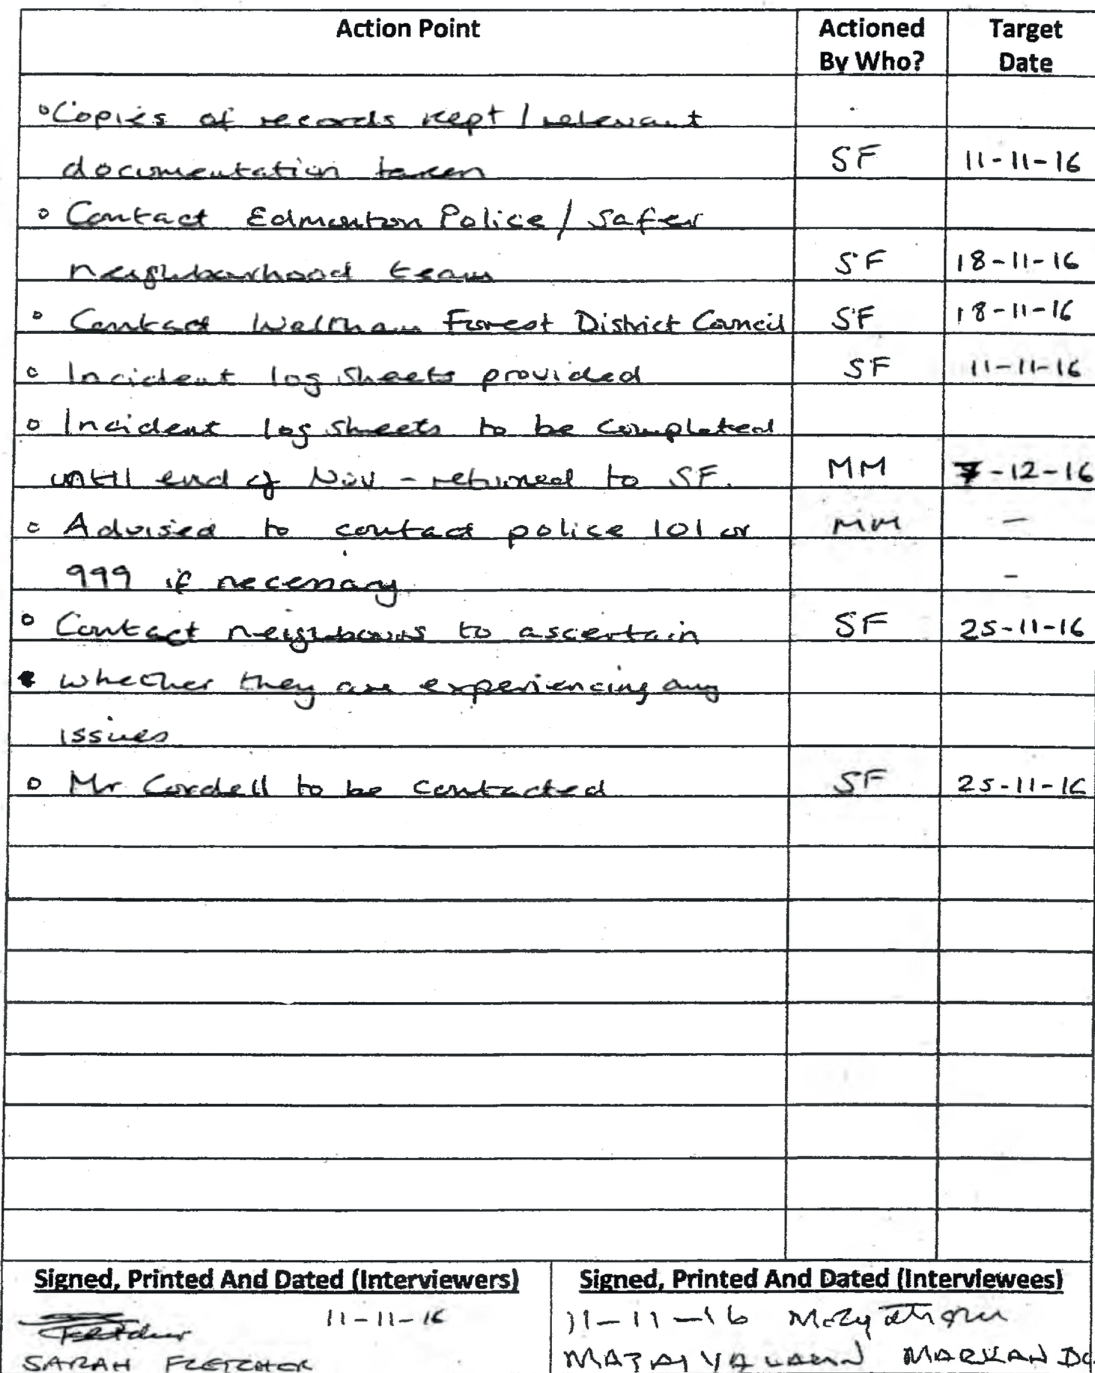 Action Point Actioned By Who? Target Date
°Copies of records kept / relevant
documentation taken SF 11-11-16
° Contact Edmonton Police / Safer
neighbourhood team SF 18-11-16
° Contact Waltham Forest District Council SF 18-11-16
° Incident log sheets provided SF 11-11-16
° Incident log sheets to be completed
until end of Nov - returned to SF. MM 7-12-16
° Advised to contact police 101 or MM –
999 if necessary. –
° Contact neighbours to ascertain SF 25-11-16
whether they are experiencing any
issues
° Mr Cordell to be contacted SF 25-11-16
Signed, Printed And Dated (Interviewers) Signed, Printed And Dated (Interviewees)
11-11-16 11-11-16
SARAH FLETCHER